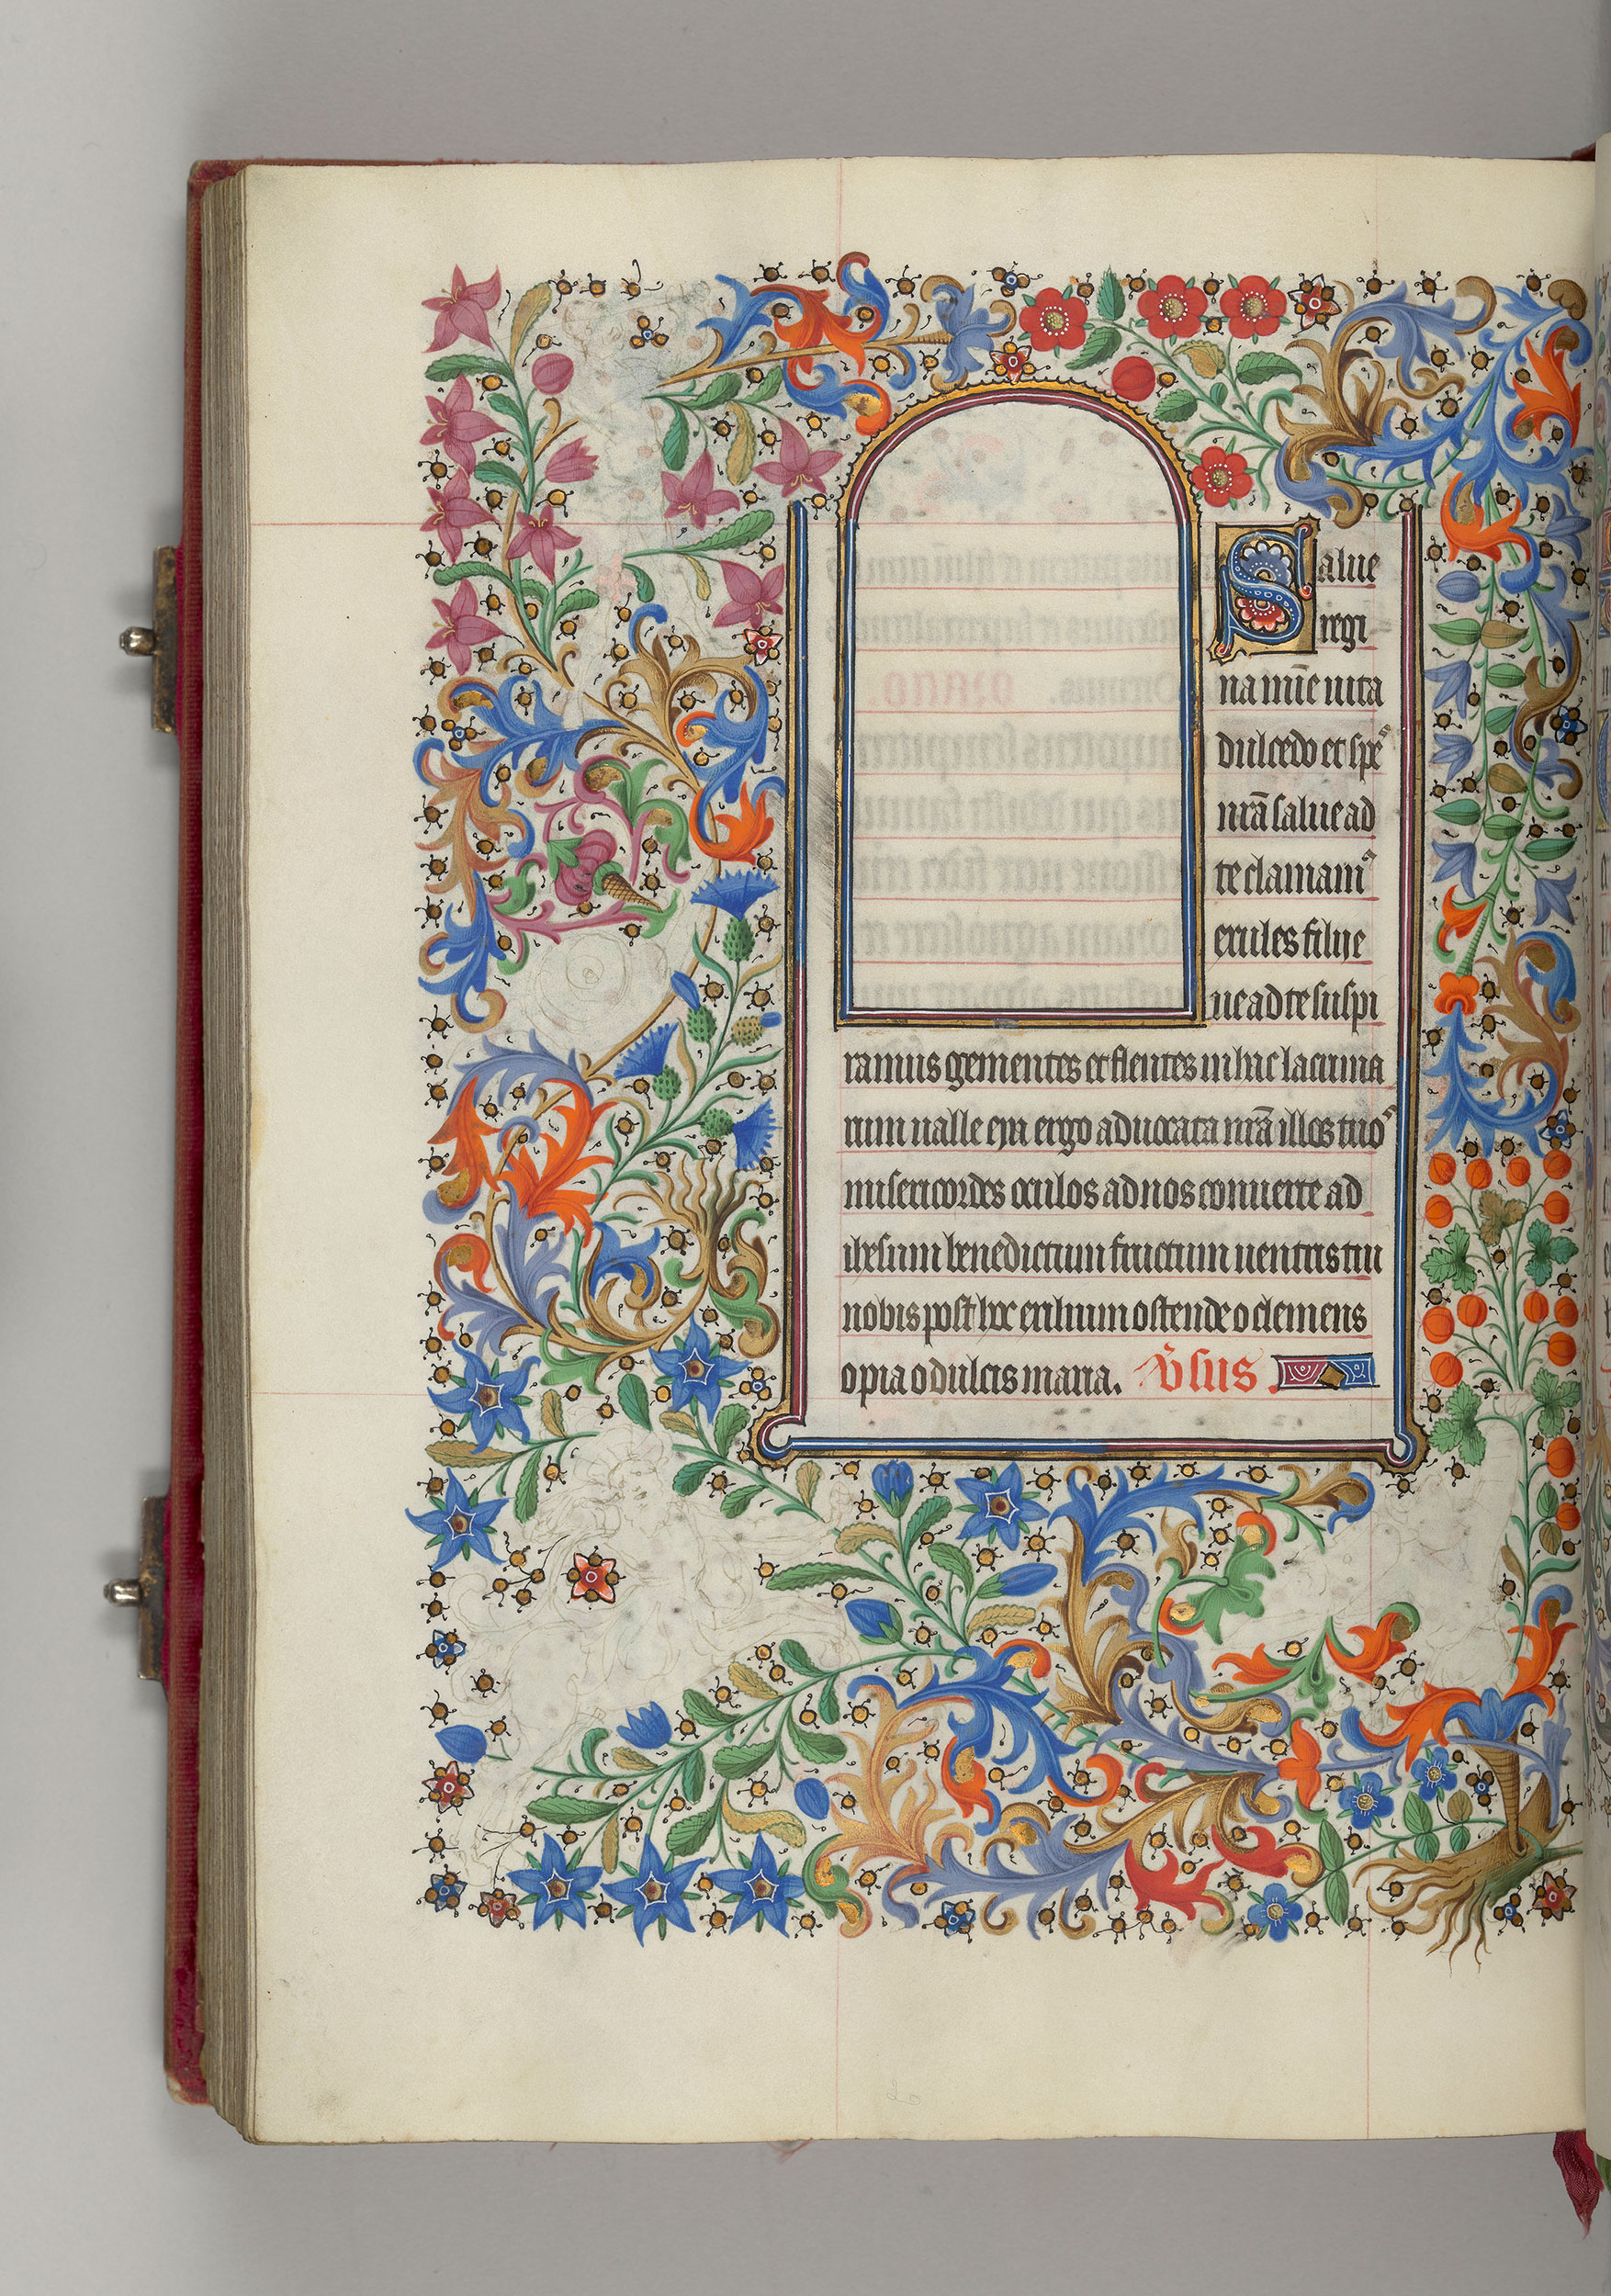 Salue
regi
na mīe uita
dulcedo et spe᷒
nr̄a salue ad
te clamam᷒
exules filij e
ue ad te suspi
ramus gementes et flentes in hac lacrima
rum ualle eya ergo aduocata nr̄a illos tuo᷒
misericordes oculos ad nos conuerte ad
ihesum benedictum fructum uentris tui
nobis post hoc exilium ostende o clemens
o pia o dulcis maria. V̄sus.